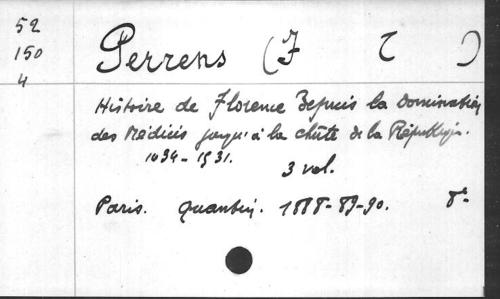 52
150
4
Perrens (F T)
Histoire de Florence Depuis la Domination
des Médicis jusqu'à la chute de la République.
1434-1531.
3 vol.
Paris. Quantin. 1888-89-90. 8°